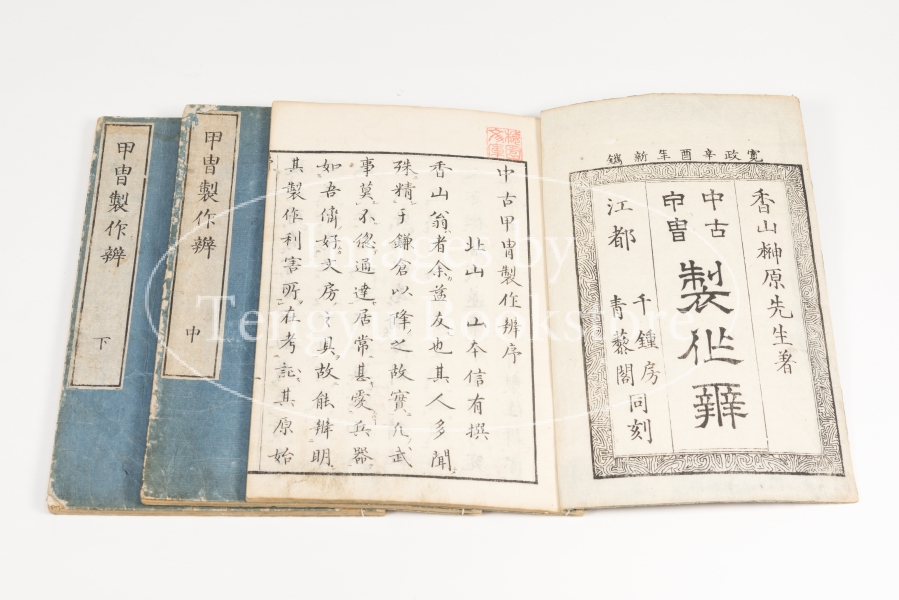 寛政辛酉年新鐫
香山榊原先生著
中古
甲冑
製作辨
江都
千鍾房
青藜閣
同刻
中古甲冑製作辨序
北山 山本信有撰
香山翁者余益友也其人多聞
殊精于鎌倉以降之故實凡武
事莫不
通達居常甚愛兵器
如吾儕好文房之具故能辨明
其製作利害所在考記其原始
甲冑製作辨
中
甲冑製作辨
下
Images by
Tengyu Bookstore